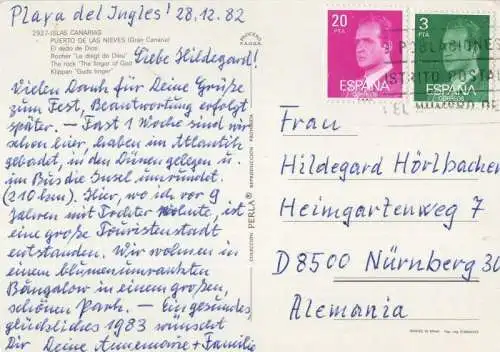 Playa del Ingles! 28.12.82
2927-ISLAS CANARIAS
PUERTO DE LAS NIEVES (Gran Canaria)
El dedo de Dios
Rocher "Le doigt du Dieu"
The rock "The finger of God
Klippen "Guds finger"
Liebe Hildegard!
Vielen Dank für Deine Grüße
zum Fest, Beantwortung erfolgt
später. — Fast 1 Woche sind wir
schon hier, haben im Atlantik
gebadet, in den Dünen gelegen u.
im Bus die Insel umrundet.
(210 km). Hier, wo ich vor 9
Jahren mit Tochter wohnte, ist
eine große Touristenstadt
entstanden. Wir wohnen in
einem blumenumrankten
Bungalow in einem großen,
schönen Park. — Ein gesundes
glückliches 1983 wünscht
Dir Deine Annemarie + Familie
COLECCION PERLA REPRODUCCION PROHIBIDA
20
PTA
ESPAÑA
CORREOS
3
PTA
ESPAÑA
CORREOS
POBLACIONES
DISTRITO POSTAL
EL
Frau
Hildegard Hörlbacher
Heimgartenweg 7
D 8500 Nürnberg 30
Alemania